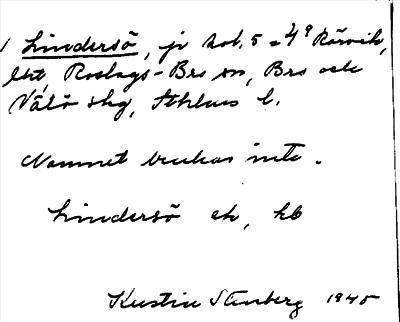 Lindersö, jr kol. 5 = 4⁹ Rörvik,
lht, Roslags-Bro sn, Bro och
Vätö skg, Sthlms l.
Namnet brukas inte.
Lindersö ek, kb
Kerstin Stenberg 1945